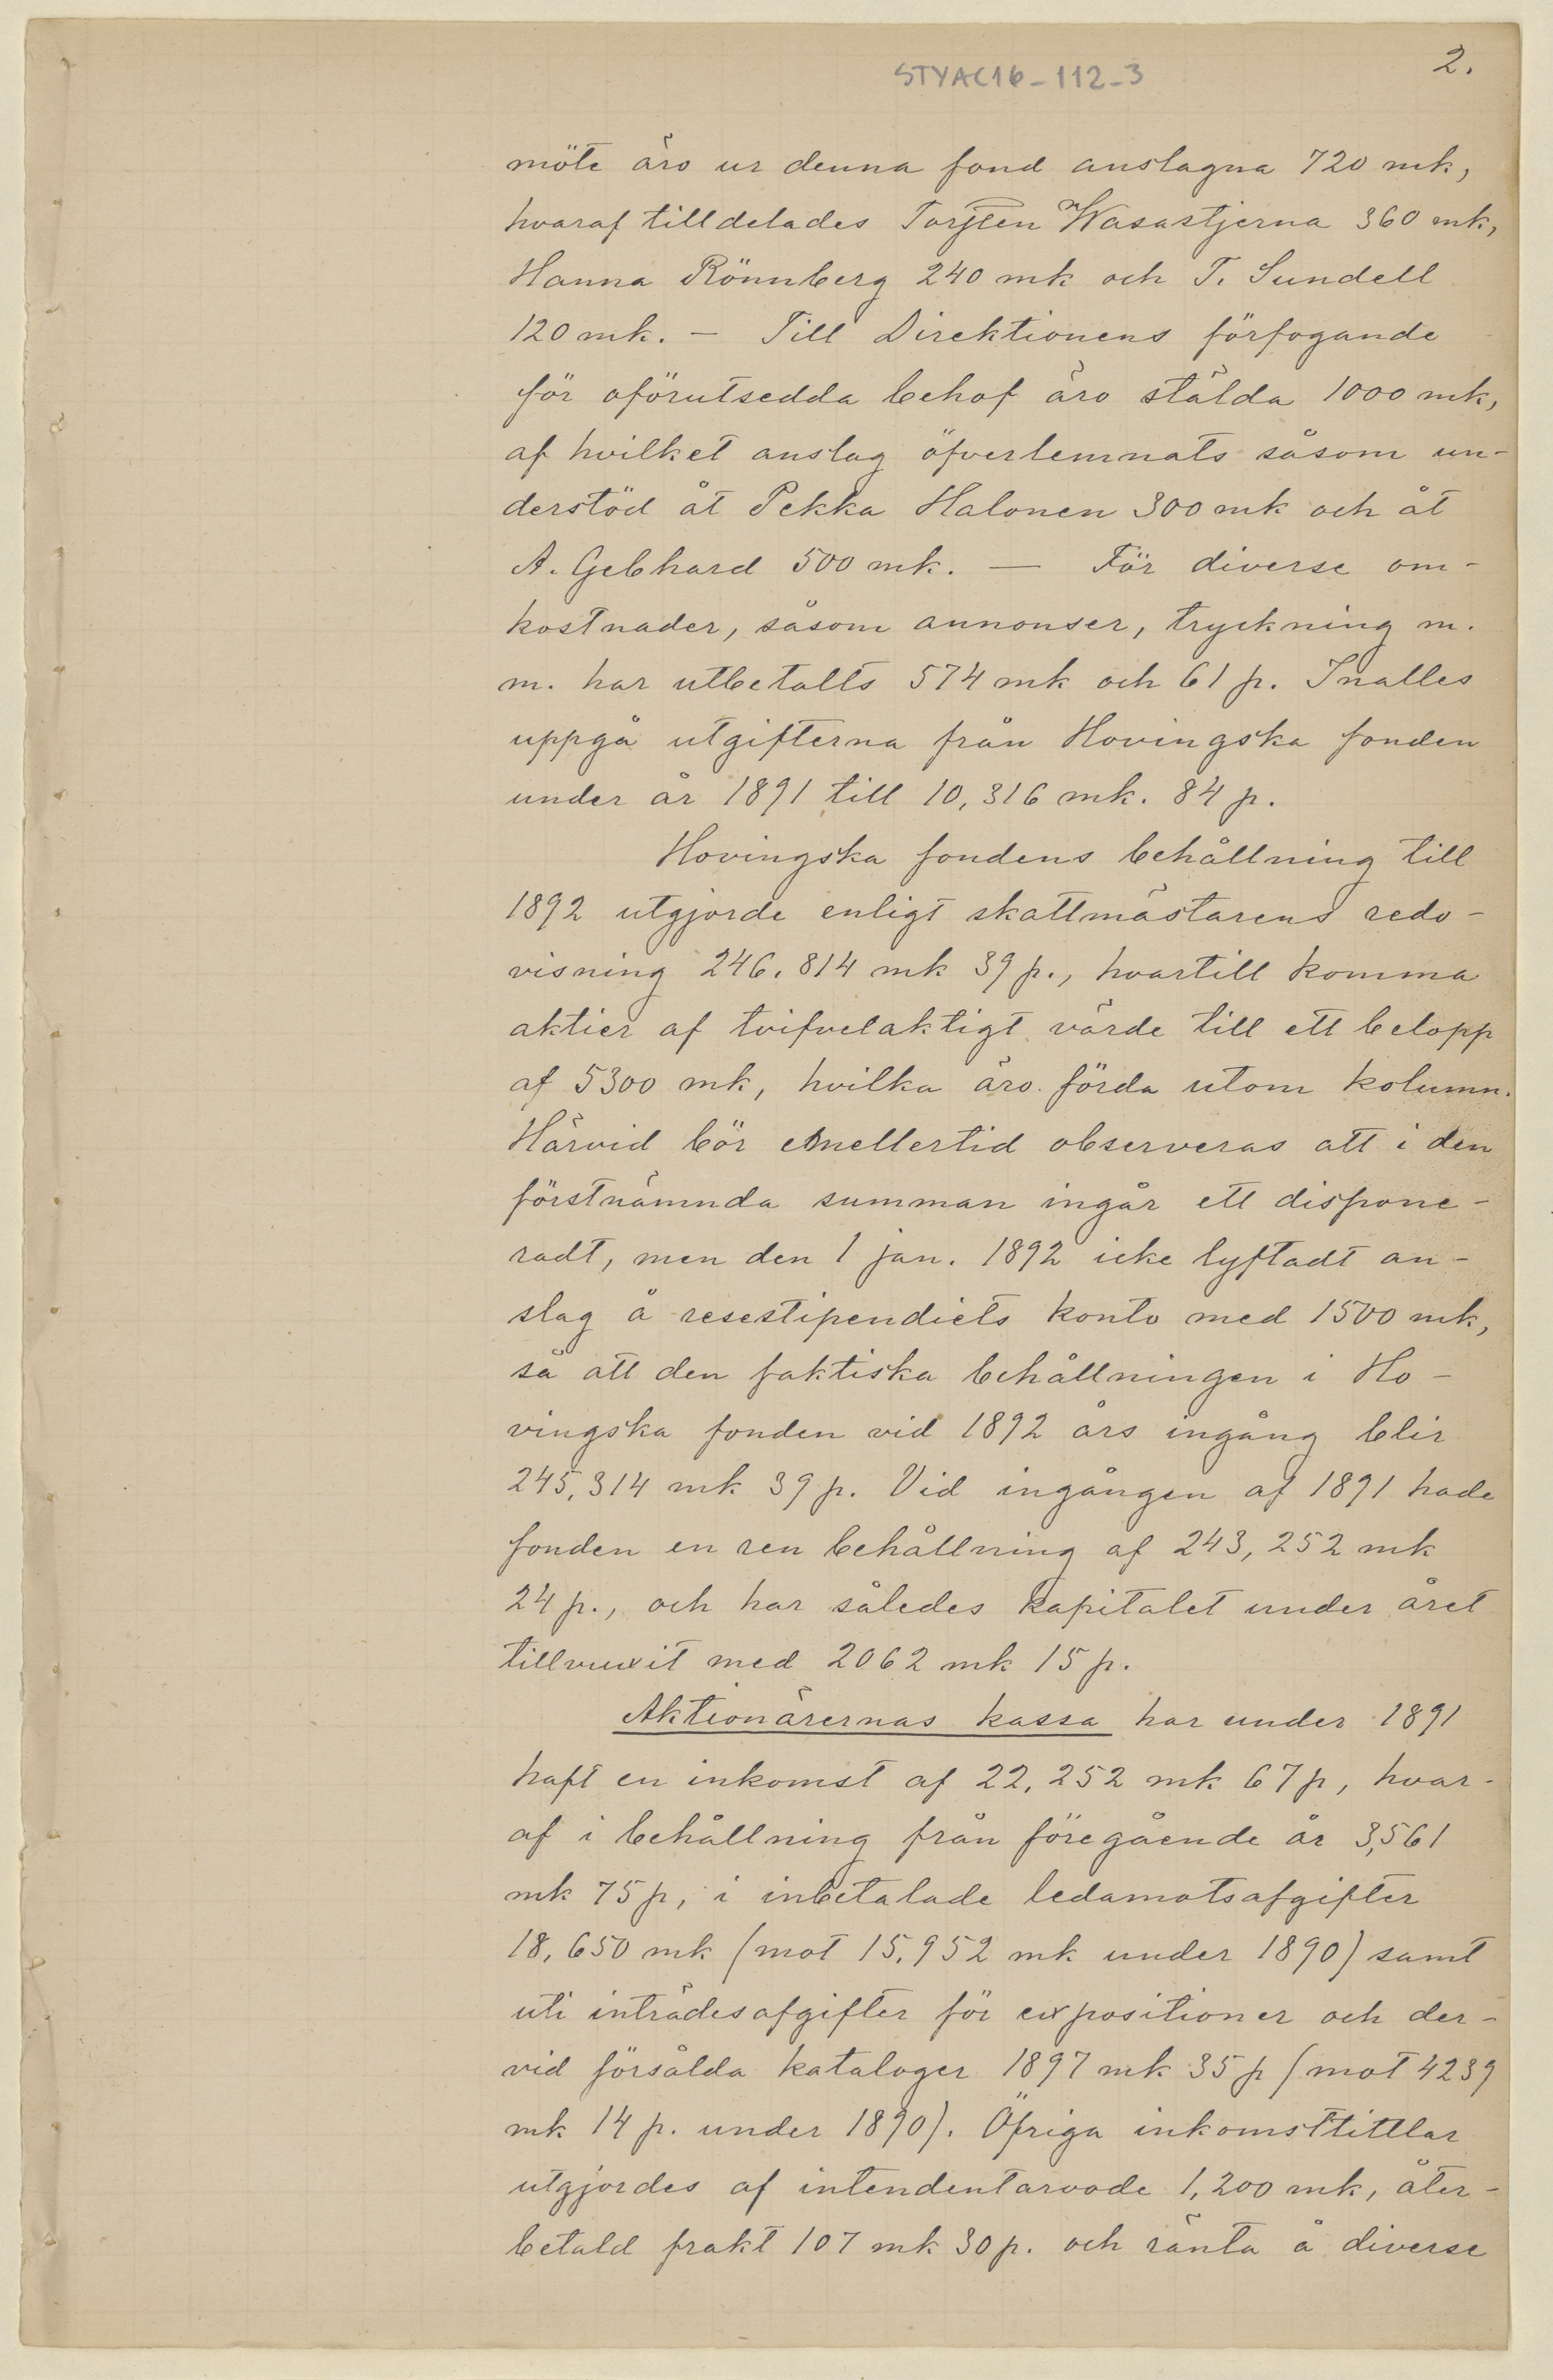 STYAC16-112-3
2.
möte äro ur denna fond anslagna 720 mk,
hvaraf tilldelades Torsten Wasastjerna 360 mk,
Hanna Rönnberg 240 mk och T. Sundell
120 mk. — Till Direktionens förfogande
för oförutsedda behof äro stälda 1000 mk,
af hvilket anslag öfverlemnats såsom un-
derstöd åt Pekka Halonen 300 mk och åt
A. Gebhard 500 mk. — För diverse om-
kostnader, såsom annonser, tryckning m.
m. har utbetalts 574 mk och 61 p. Inalles
uppgå utgifterna från Hovingska fonden
under år 1891 till 10,316 mk. 84 p.
Hovingska fondens behållning till
1892 utgjorde enligt skattmästarens redo-
visning 246.814 mk 39 p., hvartill komma
aktier af tvifvelaktigt värde till ett belopp
af 5300 mk, hvilka äro förda utom kolumn.
Härvid bör emellertid observeras att i den
förstnämnda summan ingår ett dispone-
radt, men den 1 jan. 1892 icke lyftadt an-
slag å resestipendiets konto med 1500 mk,
så att den faktiska behållningen i Ho-
vingska fonden vid 1892 års ingång blir
245,314 mk 39 p. Vid ingången af 1891 hade
fonden en ren behållning af 243,252 mk
24 p., och har således kapitalet under året
tillvuxit med 2062 mk 15 p.
Aktionärernas kassa har under 1891
haft en inkomst af 22,252 mk 67 p, hvar-
af i behållning från föregående år 3,561
mk 75 p, i inbetalade ledamotsafgifter
18,650 mk (mot 15,952 mk under 1890) samt
uti inträdesafgifter för expositioner och der-
vid försålda kataloger 1897 mk 35 p (mot 4239
mk 14 p. under 1890). Öfriga inkomsttitlar
utgjordes af intendentarvode 1,200 mk, åter-
betald frakt 107 mk 30 p. och ränta å diverse